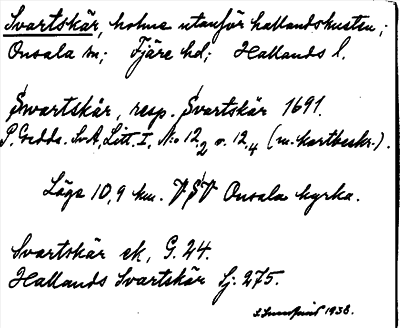 Svartskär, holme utanför hallandskusten;
Onsala sn; Fjäre hd; Hallands l.
Swartskår, resp. Svartskär 1691.
P. Gedda. SvA, Litt. I, N:o 12₂ o. 12₄ (m. kartbeskr.).
Läge 10,9 km. VSV Onsala kyrka.
Svartskär ek, G. 24.
Hallands Svartskär Sj: 275.
1938.